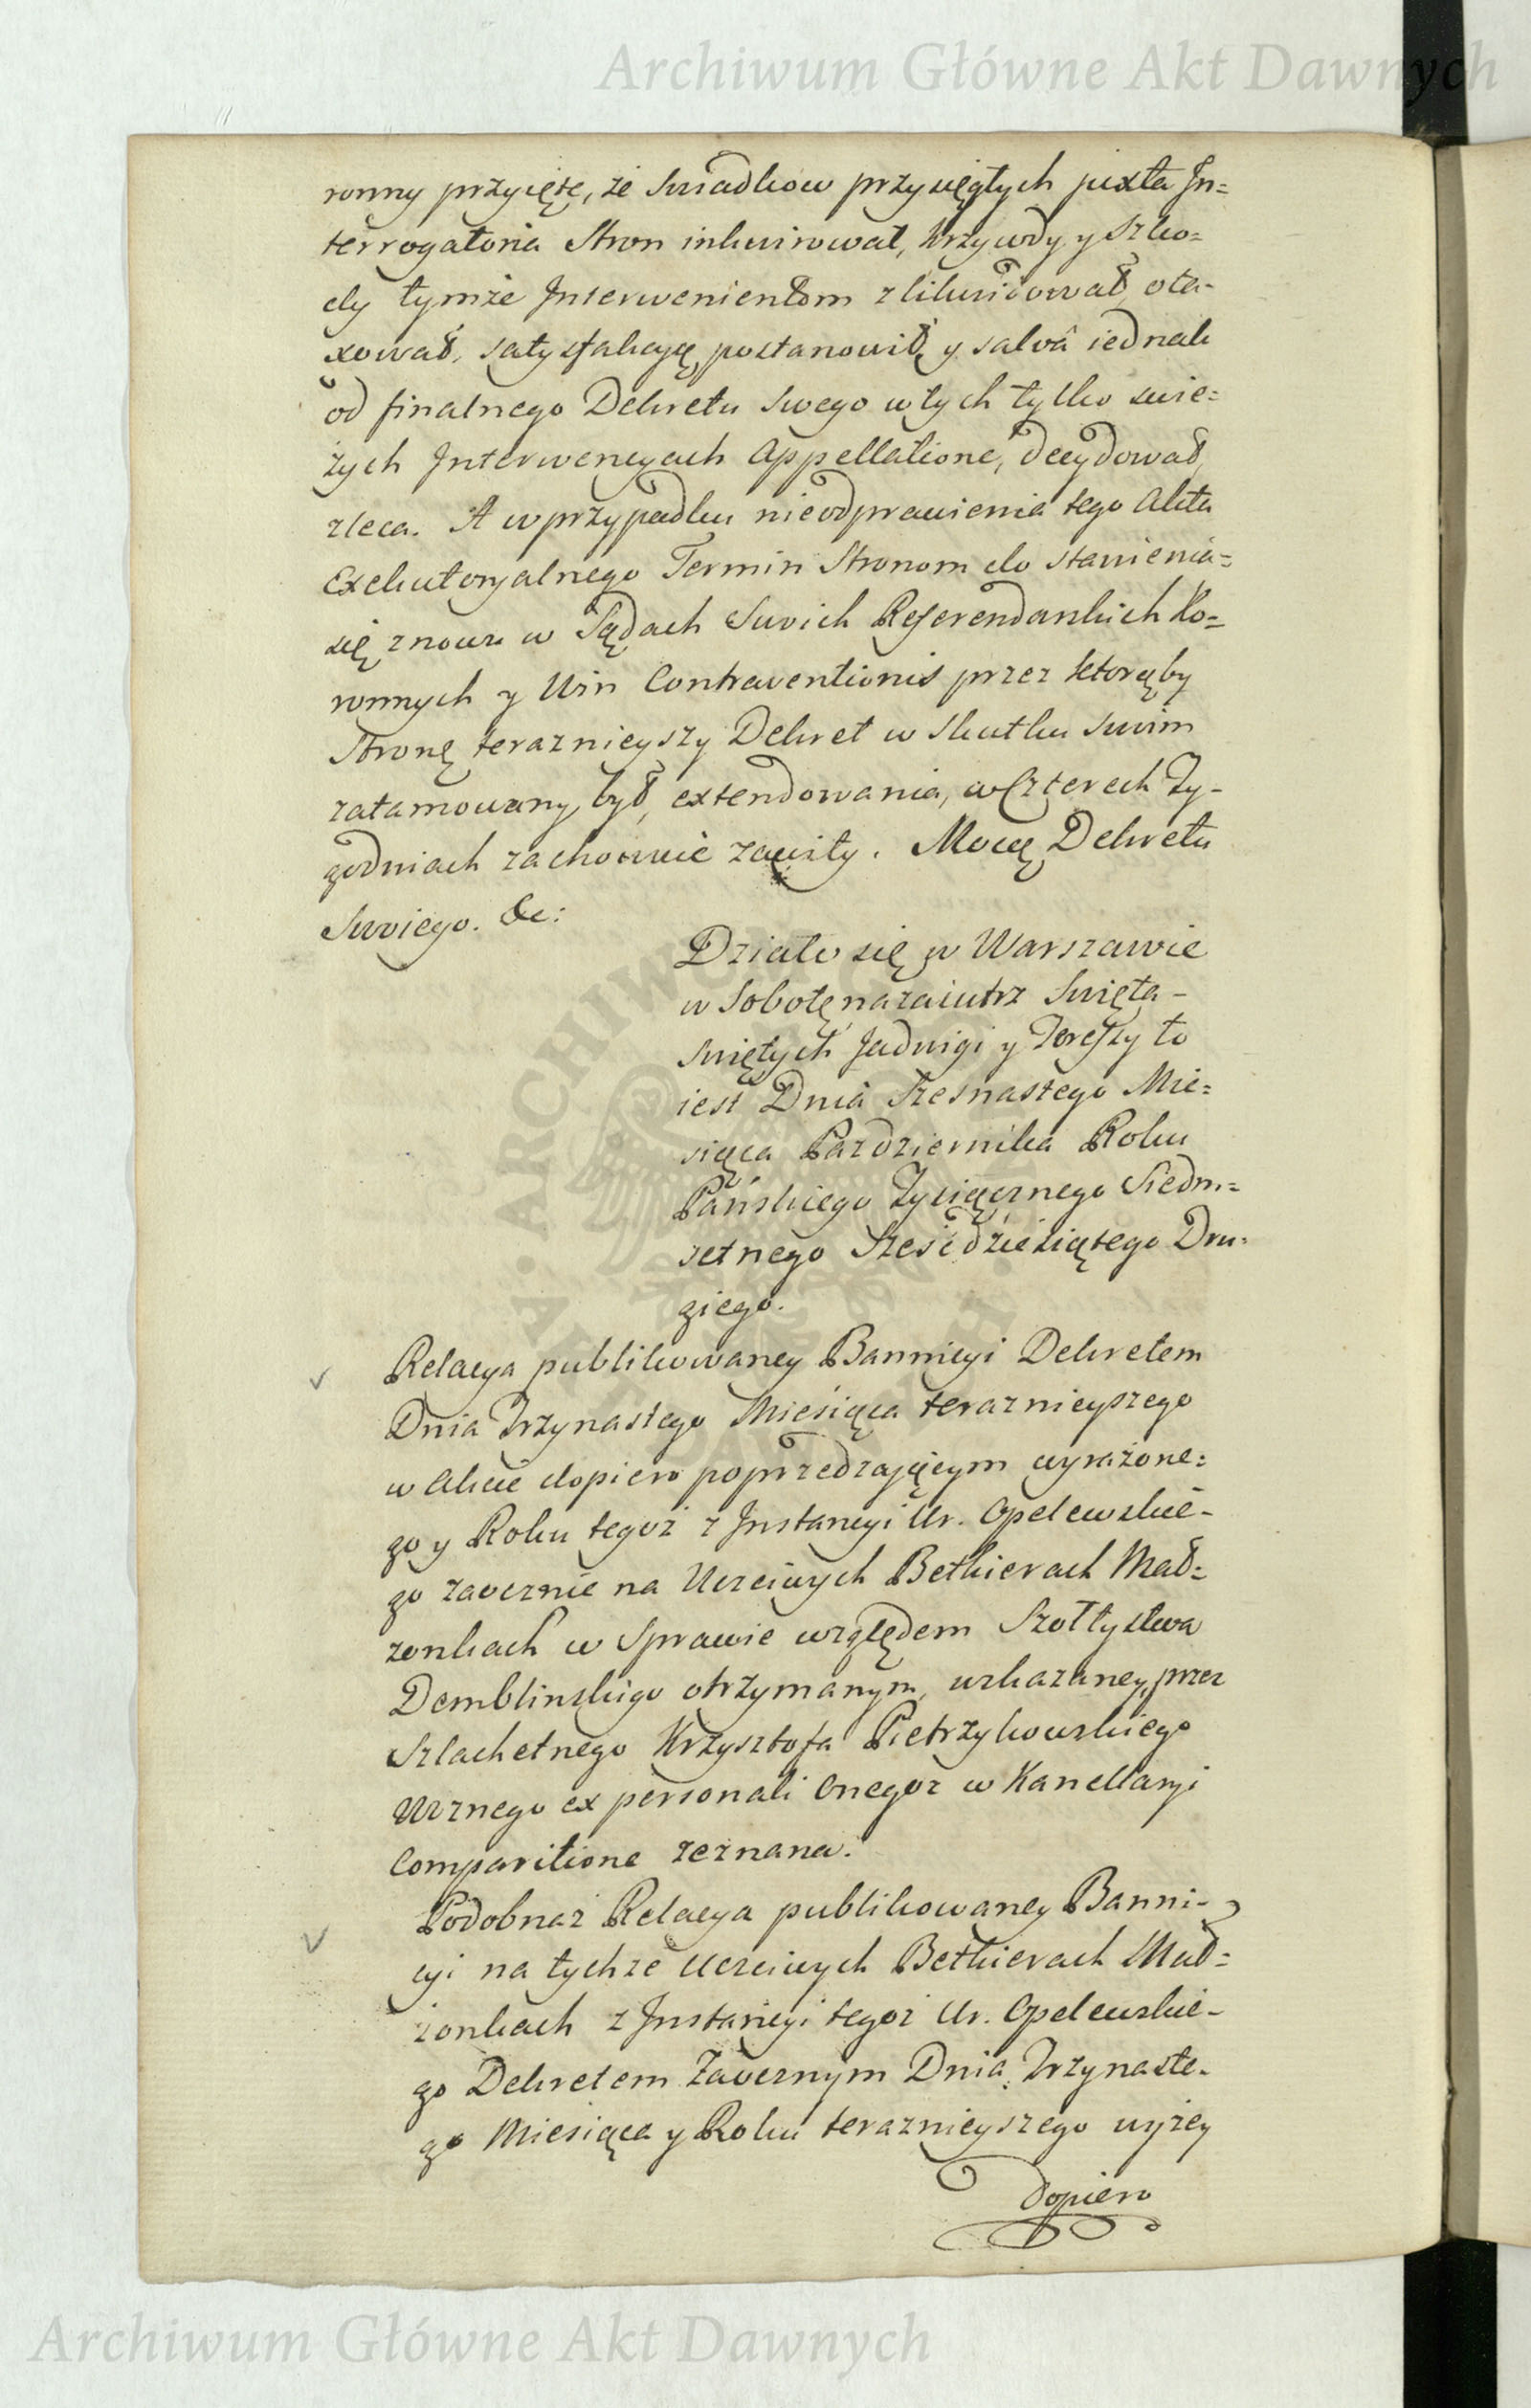 Archiwum Główne Akt Dawnych
ronny przyiętę, że Swiadkow przysięgłych juxta In=
terrogatoria Stron inkwirował, krzywdy y szko=
dy tymże Interwenientom zlikwidował, ota-
xował, satysfakcyę postanowił, y salvâ iednak
od finalnego Dekretu swego w tych tylko swie=
żych Interwencyach Appellatione, decydował
zleca. A w przypadku nieodprawienia tego Aktu
Exekutoryalnego Termin Stronom do stawienia=
się znowu w Sądach Swoich Referendarskich Ko=
ronnych y Win Contraventionis przez ktorąby
Stronę teraznieyszy Dekret w Skutku Swoim
zatamowany był, extendowania, w Czterech Ty-
godniach zachowuie zawity. Mocą Dekretu
Swoiego. &c:
Działo się w Warszawie
w Sobotę nazaiutrz Święta-
Swiętych Jadwigi y Teressy to
iest Dnia Szesnastego Mie=
siąca Pazdziernika Roku
Pańskiego Tysiącznego Siedm=
setnego Sześćdziesiątego Dru-
giego.
Relacya publikowaney Bannicyi Dekretem
Dnia Trzynastego Miesiąca teraznieyszego
w Akcie dopiero poprzedzaiącym wyrażone=
go y Roku tegoż z Instancyi Ur. Opelewskie-
go zaocznie na Uczciwych Bethierach Mał=
żonkach w Sprawie względem Szołtystwa
Demblinskigo otrzymanym, wskazaney, przez
Szlachetnego Krzysztofa Pietrzykowskiego
Wznego ex personali Onegoż w Kancellaryi
Comparitione zeznana.
Podobnaż Relacya publikowaney Banni-
cyi na tychże Uczciwych Bethierach Mał=
żonkach z Instancyi tegoż Ur. Opelewskie-
go Dekretem Zaocznym Dnia Trzynaste-
go Miesiąca y Roku terazneyszego wyżey
dopiero
Archiwum Główne Akt Dawnych